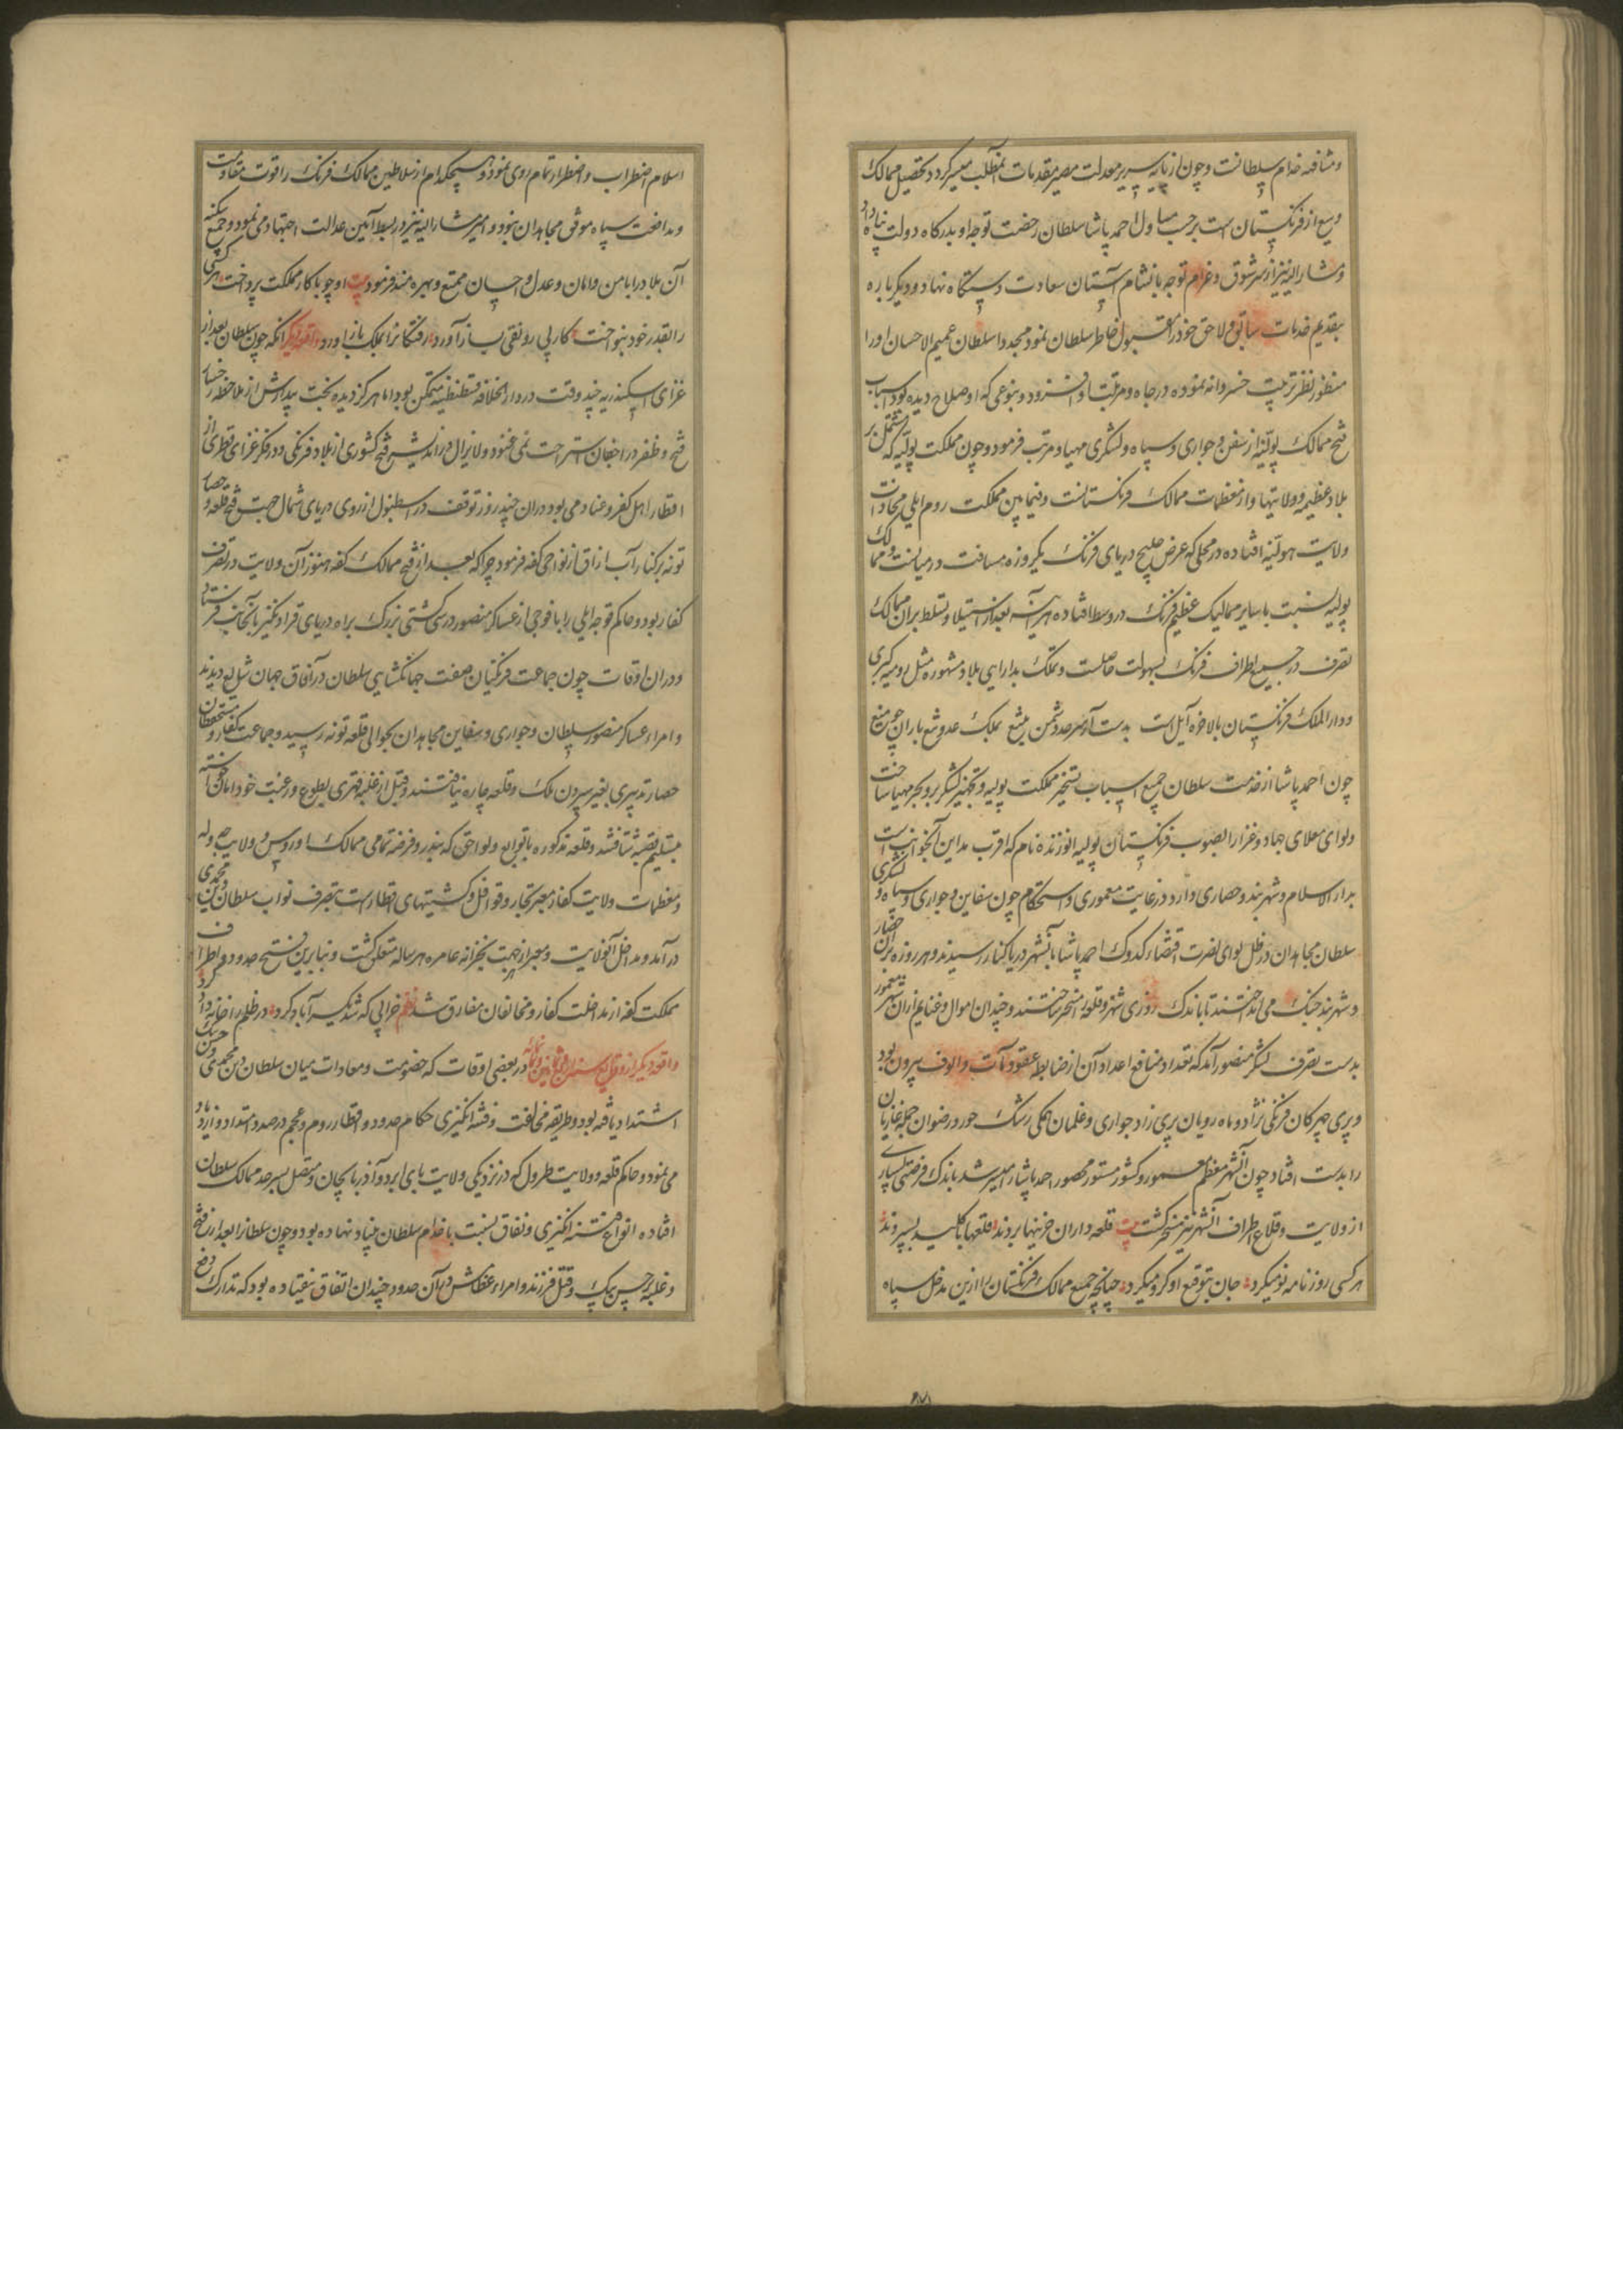 و مشافهه خدام سلطانست و چون از پایه سریر معدلت مصیر مقدمات آنمطلب میسر کردد تحصیل ممالک
وسیع از فرنکستان است برحسب احمد پاشا سلطان رخصت توجه او بدرکاه دولت پناه داد
و مشار الیه نیز از سر شوق و غرام توجه بانشام آستان سعادت دستکاه نهاد و دیکر باره
بتقدیم خدمات سابق و لاحق خود را مقبول خاطر سلطان نمود مجددا سلطان عمیم الاحسان او را
منظور نظر تربیت خسروانه نموده در جاه و مرتبت او افزود و بنوعی که او صلاح دیده بود اسباب
فتح ممالک پولیه از سفن و جواری و سپاه و لشکری مهیا و مرتب فرمود و چون مملکت پولیه که مشتمل بر
بلاد عظیمه و ولایتها و از معظمات ممالک فرنکستانست و فیمابین مملکت روم ایلی محاذات
ولایت هولنیه افتاده در محلی که عرض خلیج دریای فرنک یکروزه مسافت در میانست و ممالک
پولیه نسبت با سایر ممالیک عظیم فرنک در وسط افتاده هر آینه بعد از استیلا و تسلط بران ممالک
تصرف در جمیع اطراف فرنک بسهولت حاصلست و تملک بدارایی بلاد مشهوره مثل رومیه کبری
و دار الملک فرنکستان بالاخره آیل است بدست آر سرحد دشمن به تیغ بملک عدو تیغ باران چو میغ
چون احمد پاشا از خدمت سلطان جمیع اسباب تسخیر مملکت پولیه و تجهیز لشکر بر و بحر مهیا ساخت
و لوای معلای جهاد و غزا را بصوب فرنکستان پولیه نام که اقرب مداین آنجوانب است
بدار الاسلام و شهربند و حصاری دارد در غایت معموری و استحکام چون سفاین و جواری و سپاه و لشکری
سلطان مجاهدان در ظل لوای نصرت اقتضاء کدوک احمد پاشا بآنشهر دریا کنار رسیدند و هر روزه بران حصار
و شهربند جنک می انداختند تا باندک روزی شهر و قلعه را مسخر ساختند و چندان اموال و غنایم ازان شهر معمور
بدست تصرف لشکر منصور آمد که تعداد منافع اعداد آن از ضابطه عقود مآت و الوف بیرون بود
و پری چهرکان فرنکی نژاد و ماه رویان پری زاد جواری و غلمان همکی رشک حور و رضوان جمله غازیان
را بدست افتاد چون آنشهر معظم معمور و کشور مستور محصور احمد پاشا را میسر شد باندک فرصتی بسیاری
از ولایت و قلاع اطراف آنشهر نیز مسخر کشت بیت قلعه داران خزینها بردند قلعها با کلید بسپردند
هر کسی روزنامه نو میکرد جان بتوقع او کرو میکرد چنانچه جمیع ممالک فرنکستان را ازین مدخل سپاه
اسلام اضطراب و اضطرار تمام روی نمود و هیچکدام از سلاطین ممالک فرنک را قوت مقاومت
و مدافعت سپاه موفق مجاهدان نبود و امیر مشار الیه نیز در بسط آیین عدالت اجتهاد می نمود و جمیع سکنه
آن بلاد را با من و امان و عدل و احسان ممتع و بهره مند فرمود بیت او چو با کار مملکت پرداخت هر کسی
را بقدر خود بنواخت کار بی رونقی بساز آورد رفتکانرا بملک باز آورد واقعه دیکر آنکه چون سلطان بعد از
غزای اسکندریه چند وقت در دار الخلافه قسطنطنیه متمکن بود اما هرکز دیده بخت بیدارش از ملاحظه رخسار
فتح و ظفر در اجفان استراحت نمی غنود و لایزال در اندیشه فتح کشوری از بلاد فرنکی و در فکر غزای قطری از
اقطار اهل کفر و عناد می بود دران چند روز توقف در اسطنبول از روی دریای شمال جهت فتح قلعه و حصار
تونه بر کنار آب ازاق از نواحی کفه فرمود چرا که بعد از فتح ممالک کفه هنوز آن ولایت در تصرف
کفار بود و حاکم قوجه ایلی را با فوجی از عساکر منصور در سی کشتی بزرک براه دریای قرا دنکیز بآنجانب فرستاد
و دران اوقات چون جماعت فرنکیان صفت جهانکشایی سلطان در آفاق جهان مثل بود دیدند
و امراء عساکر منصور سلطان و جواری و سفاین مجاهدان بحوالی قلعه تونه رسید و جماعت کفار و مستحفظان
حصار تدبیری بغیر سپردن ملک و قلعه چاره نیافتند و قبل از غلبه قهری بطوع و رغبت خود امان خواسته
بتسلیم بقعه شتافتند و قلعه مذکوره با توابع و لواحق که بندر و فرضه تمامی ممالک اوروس و ولایت چوله
و معظمات ولایت کفار معبر تجار و قوافل و کشتیهای اقطارست بتصرف نواب سلطان دین محمدی
در آمد و مداخل آنولایت و معبر از جهت خزانه عامره هر ساله متعلق کشت و بنابرین فتح حدود و اطراف
مملکت کفه از مداخلت کفار و مخالفان مفارق شد نظم خرابی که شد یکسر آباد کرد در ظلم را خانه داد کرد
واقعه دیکر از وقایع سنه اربع و ثمانین و ثمانمائه در بعضی اوقات که خصومت و معادات میان سلطان دین محمدی و حسن بیک
اشتداد یافته بود و طریقه مخالفت و فتنه انکیزی حکام حدود و اقطار روم و عجم در صدد امتداد و ازدیاد
می نمود و حاکم قلعه و ولایت طرول که در نزدیکی ولایت بای برد و آذربایجان و متصل بسرحد ممالک سلطان
افتاده انواع فتنه انکیزی و نفاق نسبت با خدام سلطان بنیاد نهاده بود و چون سلطانرا بعد از فتح
و غلبه بر حسن بیک و قتل فرزند و امراء عظامش در آن حدود چندان اتفاق نیفتاده بود که تدارک دفع
۴۷۱